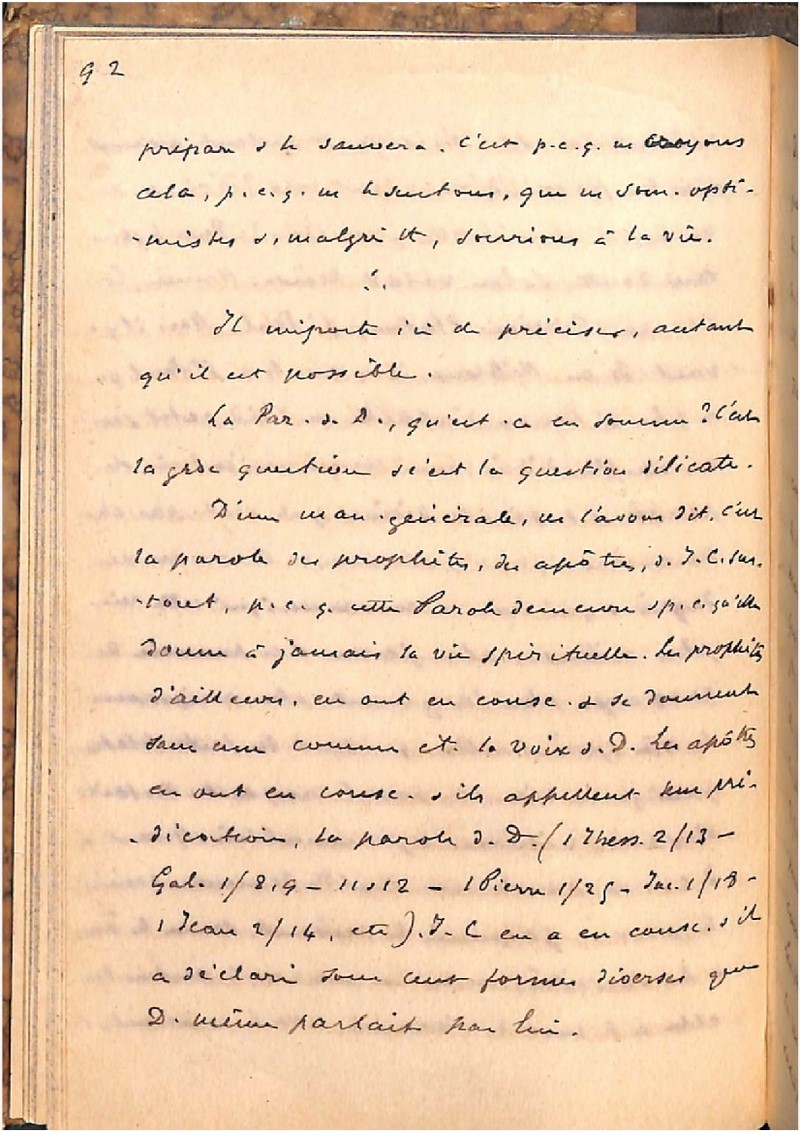 92
prépare & le sauvera. C'est p.c.q. ns croyons
cela, p.c.q. ns le sentons, que ns som. opti-
mistes &, malgré tt, sourions à la vie.
Il importe ici de préciser, autant
qu'il est possible.
La Par. de D., qu'est-ce en somme? C'est
la grde question & c'est la question délicate.
D'une man. générale, ns l'avons dit, c'est
la parole des prophètes, des apôtres, de J.C. sur-
tout, p.c.q. cette Parole demeure & p.c. qu'elle
donne à jamais la vie spirituelle. Les prophètes
d'ailleurs, en ont eu consc. & se donnent
comme et. la voix de D. Les apôtres
en ont eu consc. & ils appellent leur pré-
dication, la parole de D. (1 Thess. 2/13 –
Gal. 1/8,9 – 11 & 12 – 1 Pierre 1/25 – Jac. 1/18 –
1 Jean 2/14, etc). J-C en a eu consc. & il
a déclaré sous cent formes diverses que
D. même parlait par lui.